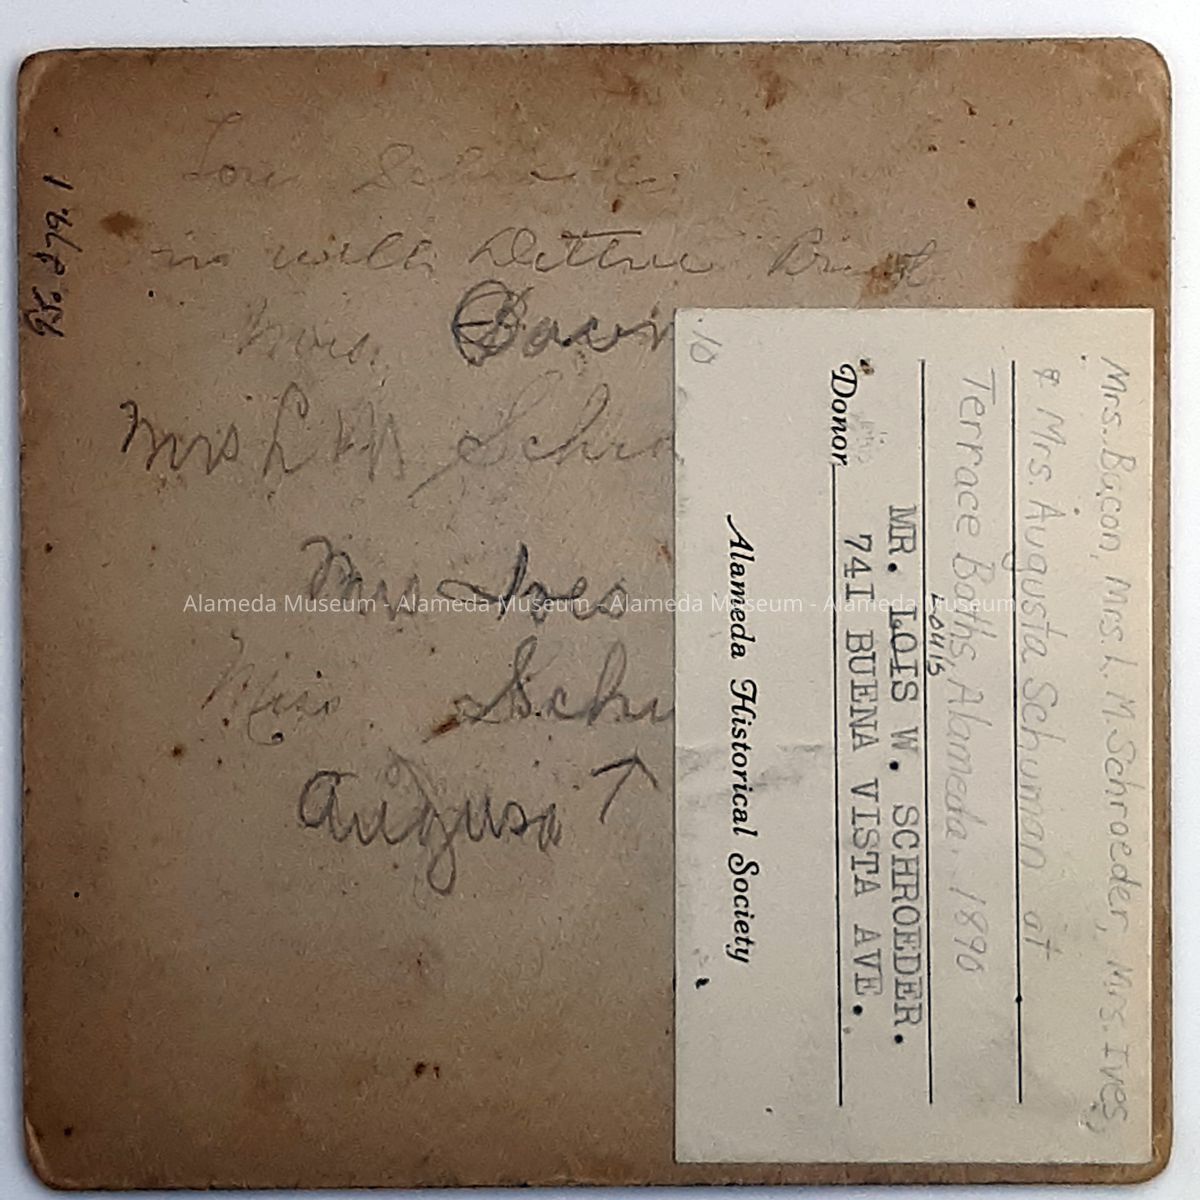 95.279.1
in with
Mrs.
Mrs L M
Mrs Ives
Miss
Augusa
10
Mrs. Bacon, Mrs. L. M. Schroeder, Mrs. Ives,
& Mrs. Augusta Schuman at
Terrace Baths, Alameda. 1890
Louis
MR. LOIS W. SCHROEDER.
Donor 741 BUENA VISTA AVE.
Alameda Historical Society
Alameda Museum - Alameda Museum - Alameda Museum - Alameda Museum